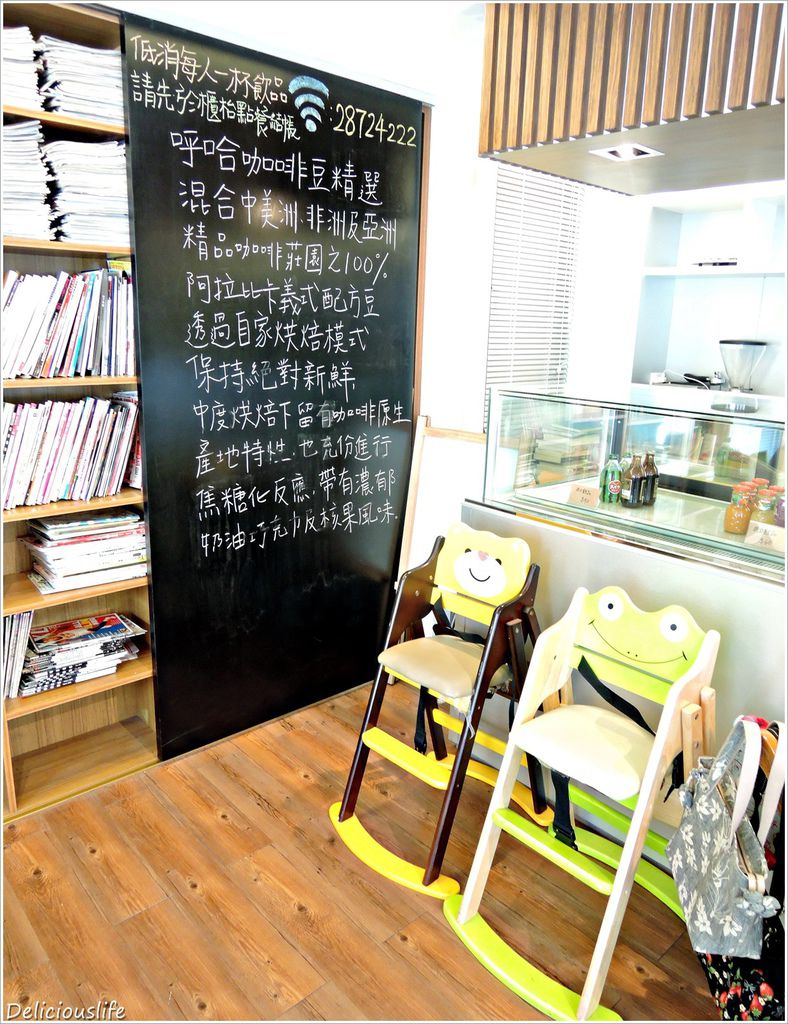 低消每人一杯飲品
請先於櫃枱點餐結帳
:28724222
呼哈咖啡豆精選
混合中美洲、非洲及亞洲
精品咖啡莊園之100%
阿拉比卡義式配方豆
透過自家烘焙模式
保持絕對新鮮
中度烘焙下留有咖啡原生
產地特性.也充份進行
焦糖化反應.帶有濃郁
奶油巧克力及核果風味.
Deliciouslife